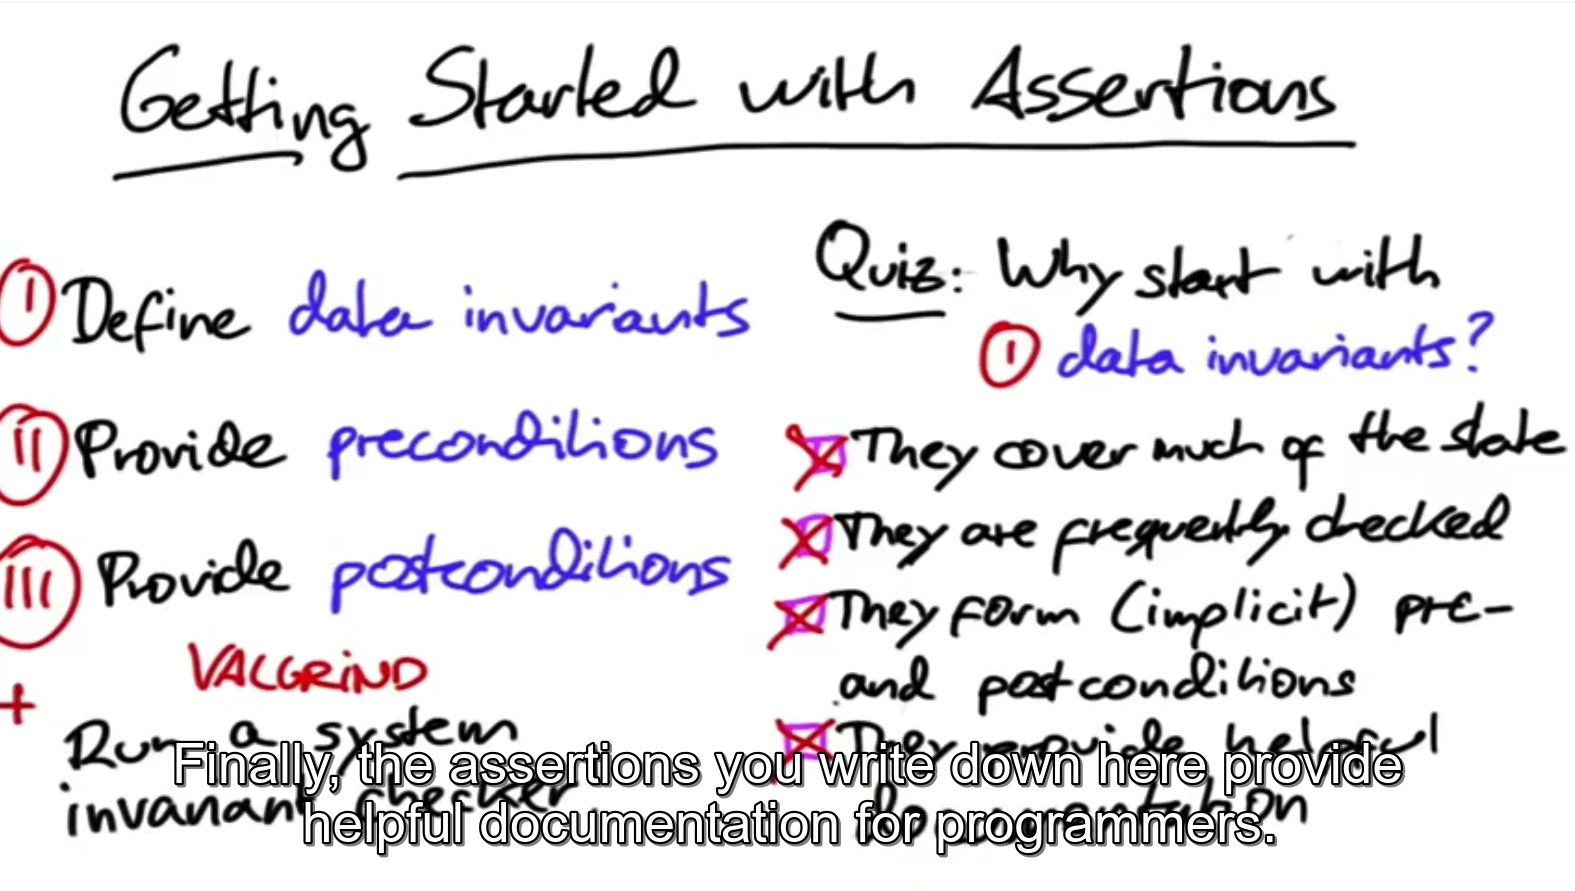 Getting Started with Assertions
I Define data invariants
II Provide preconditions
III Provide postconditions
+ VALGRIND
Run a system
invariant checker
Quiz: Why start with
I data invariants?
They cover much of the state
They are frequently checked
They form (implicit) pre-
and postconditions
They provide helpful
Documentation
Finally, the assertions you write down here provide
helpful documentation for programmers.